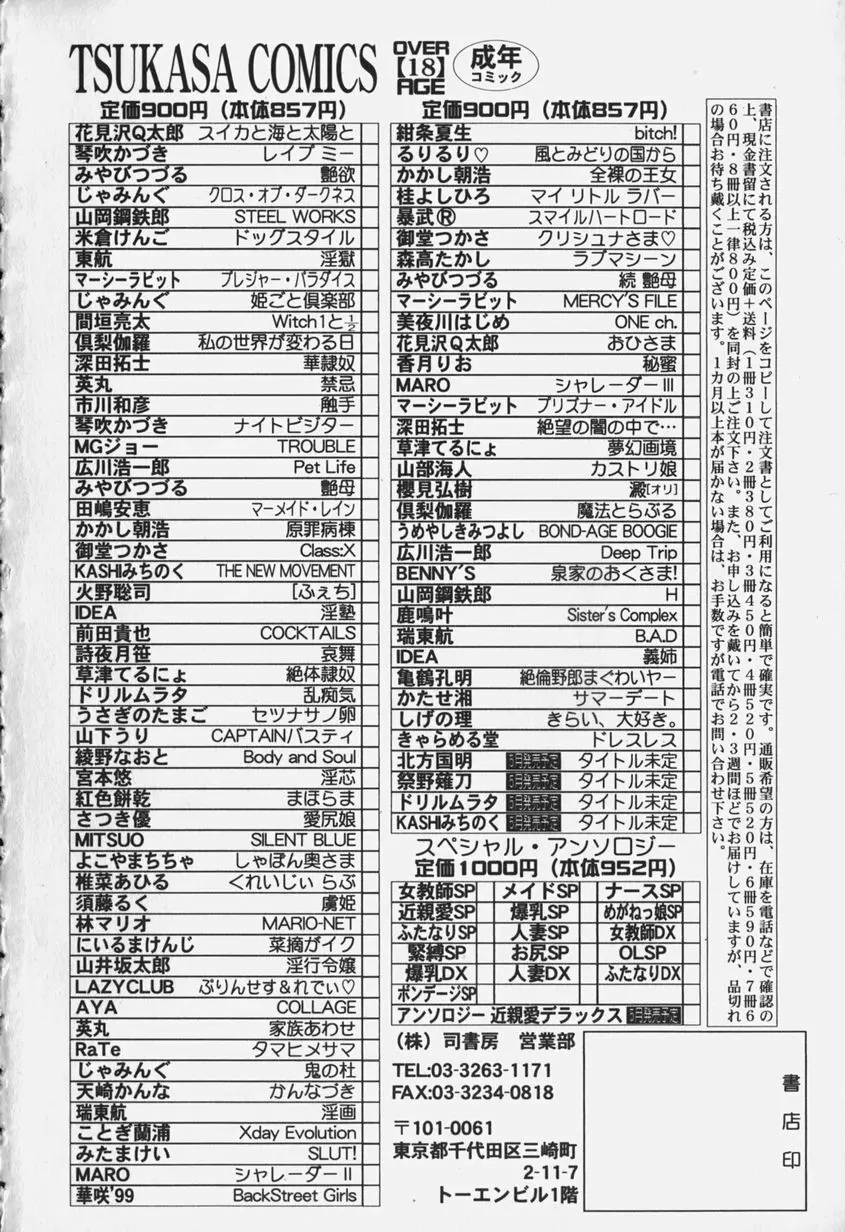 TSUKASA COMICS
OVER
【18】
AGE
成年
コミック
定価900円（本体857円）
花見沢Q太郎 スイカと海と太陽と
琴吹かづき レイプ ミー
みやびつづる 艶欲
じゃみんぐ クロス・オブ・ダークネス
山岡鋼鉄郎 STEEL WORKS
米倉けんご ドッグスタイル
東航 淫獄
マーシーラビット プレジャー・パラダイス
じゃみんぐ 姫ごと倶楽部
間垣亮太 Witch1と½
倶梨伽羅 私の世界が変わる日
深田拓士 華隷奴
英丸 禁忌
市川和彦 触手
琴吹かづき ナイトビジター
MGジョー TROUBLE
広川浩一郎 Pet Life
みやびつづる 艶母
田嶋安恵 マーメイド・レイン
かかし朝浩 原罪病棟
御堂つかさ Class:X
KASHIみちのく THE NEW MOVEMENT
火野聡司 [ふぇち]
IDEA 淫塾
前田貴也 COCKTAILS
詩夜月笹 哀舞
草津てるにょ 絶体隷奴
ドリルムラタ 乱痴気
うさぎのたまご セツナサノ卵
山下うり CAPTAINバスティ
綾野なおと Body and Soul
宮本悠 淫芯
紅色餅乾 まほらま
さつき優 愛尻娘
MITSUO SILENT BLUE
よこやまちちゃ しゃぼん奥さま
椎菜あひる くれいじぃ らぶ
須藤るく 虜姫
林マリオ MARIO-NET
にいるまけんじ 菜摘がイク
山井坂太郎 淫行令嬢
LAZYCLUB ぷりんせす&れでぃ♡
AYA COLLAGE
英丸 家族あわせ
RaTe タマヒメサマ
じゃみんぐ 鬼の杜
天崎かんな かんなづき
瑞東航 淫画
ことぎ蘭浦 Xday Evolution
みたまけい SLUT!
MARO シャレーダーⅡ
華咲'99 BackStreet Girls
定価900円（本体857円）
紺条夏生 bitch!
るりるり♡ 風とみどりの国から
かかし朝浩 全裸の王女
桂よしひろ マイ リトル ラバー
暴武Ⓡ スマイルハートロード
御堂つかさ クリシュナさま♡
森高たかし ラブマシーン
みやびつづる 続 艶母
マーシーラビット MERCY'S FILE
美夜川はじめ ONE ch.
花見沢Q太郎 おひさま
香月りお 秘蜜
MARO シャレーダーⅢ
マーシーラビット プリズナー・アイドル
深田拓士 絶望の闇の中で…
草津てるにょ 夢幻画境
山部海人 カストリ娘
櫻見弘樹 澱[オリ]
倶梨伽羅 魔法とらぶる
うめやしきみつよし BOND-AGE BOOGIE
広川浩一郎 Deep Trip
BENNY'S 泉家のおくさま!
山岡鋼鉄郎 H
鹿鳴叶 Sister's Complex
瑞東航 B.A.D
IDEA 義姉
亀鶴孔明 絶倫野郎まぐわいヤー
かたせ湘 サマーデート
しげの理 きらい、大好き。
きゃらめる堂 ドレスレス
北方国明 タイトル未定
祭野薙刀 タイトル未定
ドリルムラタ タイトル未定
KASHIみちのく タイトル未定
スペシャル・アンソロジー
定価1000円（本体952円）
女教師SP メイドSP ナースSP
近親愛SP 爆乳SP めがねっ娘SP
ふたなりSP 人妻SP 女教師DX
緊縛SP お尻SP OLSP
爆乳DX 人妻DX ふたなりDX
ボンデージSP
アンソロジー 近親愛デラックス
（株）司書房 営業部
TEL:03-3263-1171
FAX:03-3234-0818
〒101-0061
東京都千代田区三崎町
2-11-7
トーエンビル1階
書店に注文される方は、このページをコピーして注文書としてご利用になると簡単で確実です。通販希望の方は、在庫を電話などで確認の
上、現金書留にて税込み定価＋送料（1冊310円・2冊380円・3冊450円・4冊520円・5冊520円・6冊590円・7冊6
60円・8冊以上一律800円）を同封の上ご注文下さい。また、お申し込みを戴いてから2・3週間ほどでお届けしていますが、品切れ
の場合お待ち戴くことがございます。1カ月以上本が届かない場合は、お手数ですが電話でお問い合わせ下さい。
書店印